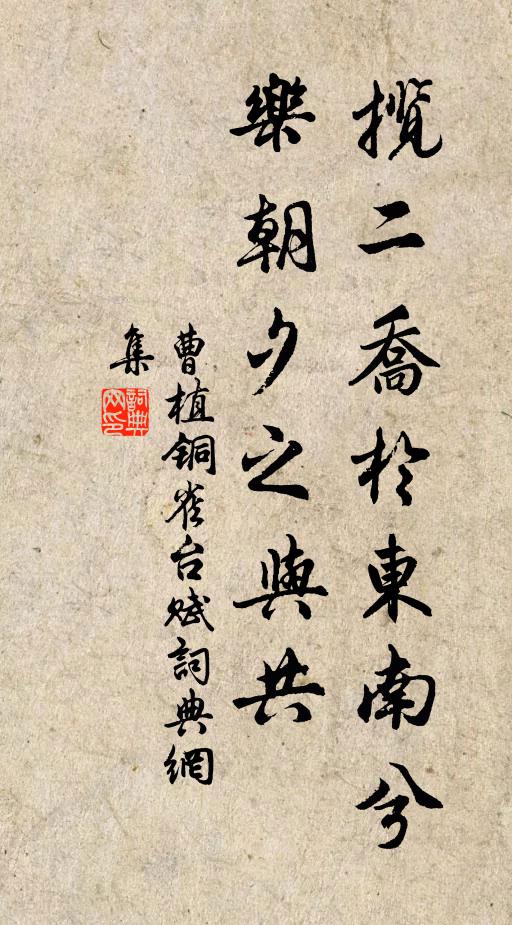 攬二喬於東南兮
樂朝夕之與共
曹植铜雀台赋詞典網
集
詞典
网印